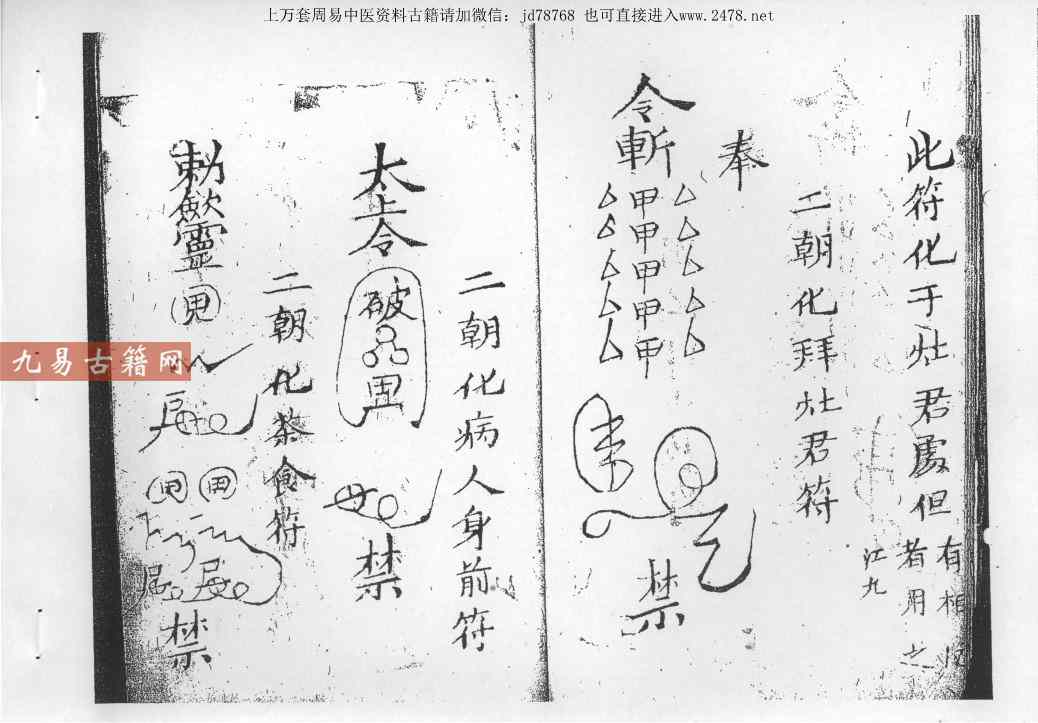 上万套周易中医资料古籍请加微信：jd78768 也可直接进入www.2478.net
此符化于灶君處但
有相
者用之
江九
二朝化拜灶君符
奉
令斬
甲甲甲甲甲
禁
二朝化病人身前符
太上令
破
禁
二朝化茶食符
勅
靈
禁
九易古籍网